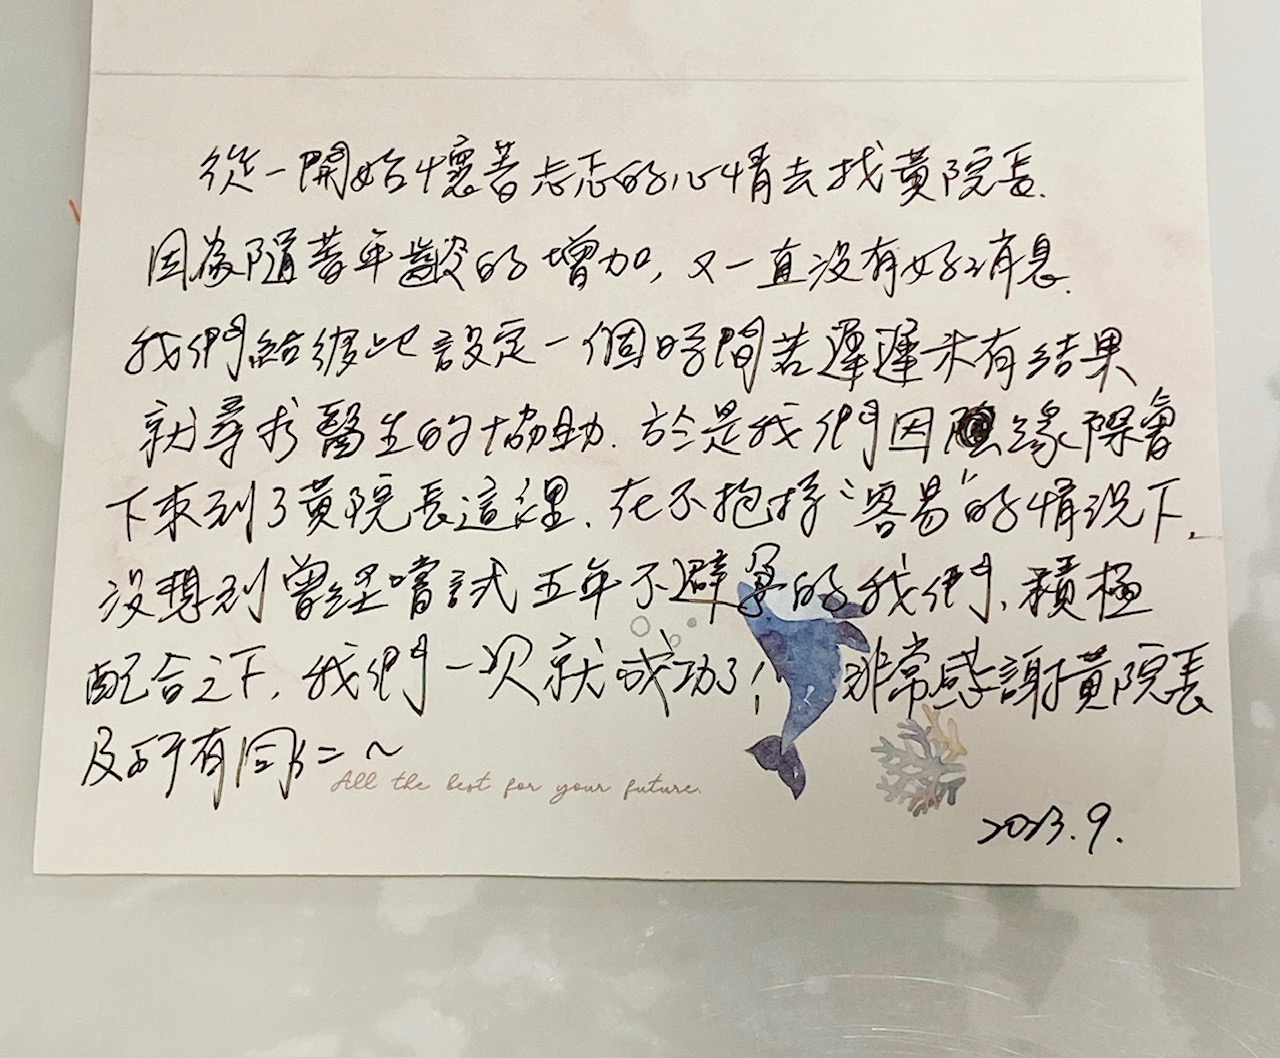 從一開始懷著忐忑的心情去找黃院長.
因為隨著年齡的增加, 又一直沒有好消息.
我們給彼此設定一個時間若遲遲未有結果
就尋求醫生的協助. 於是我們因緣際會
下來到了黃院長這裡. 在不抱持“容易”的情況下,
沒想到曾經嘗試五年不避孕的我們, 積極
配合之下, 我們一次就成功了! 非常感謝黃院長
及所有同仁~
All the best for your future.
2023.9.